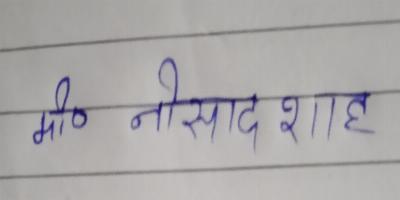 मो० नौसाद शाह